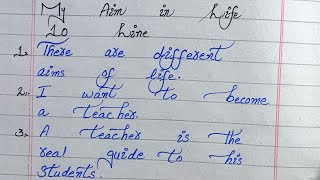 My Aim in Life
10 Line
1. There are different
aims of life.
2. I want to become
a teacher.
3. A teacher is the
real guide to his
students.